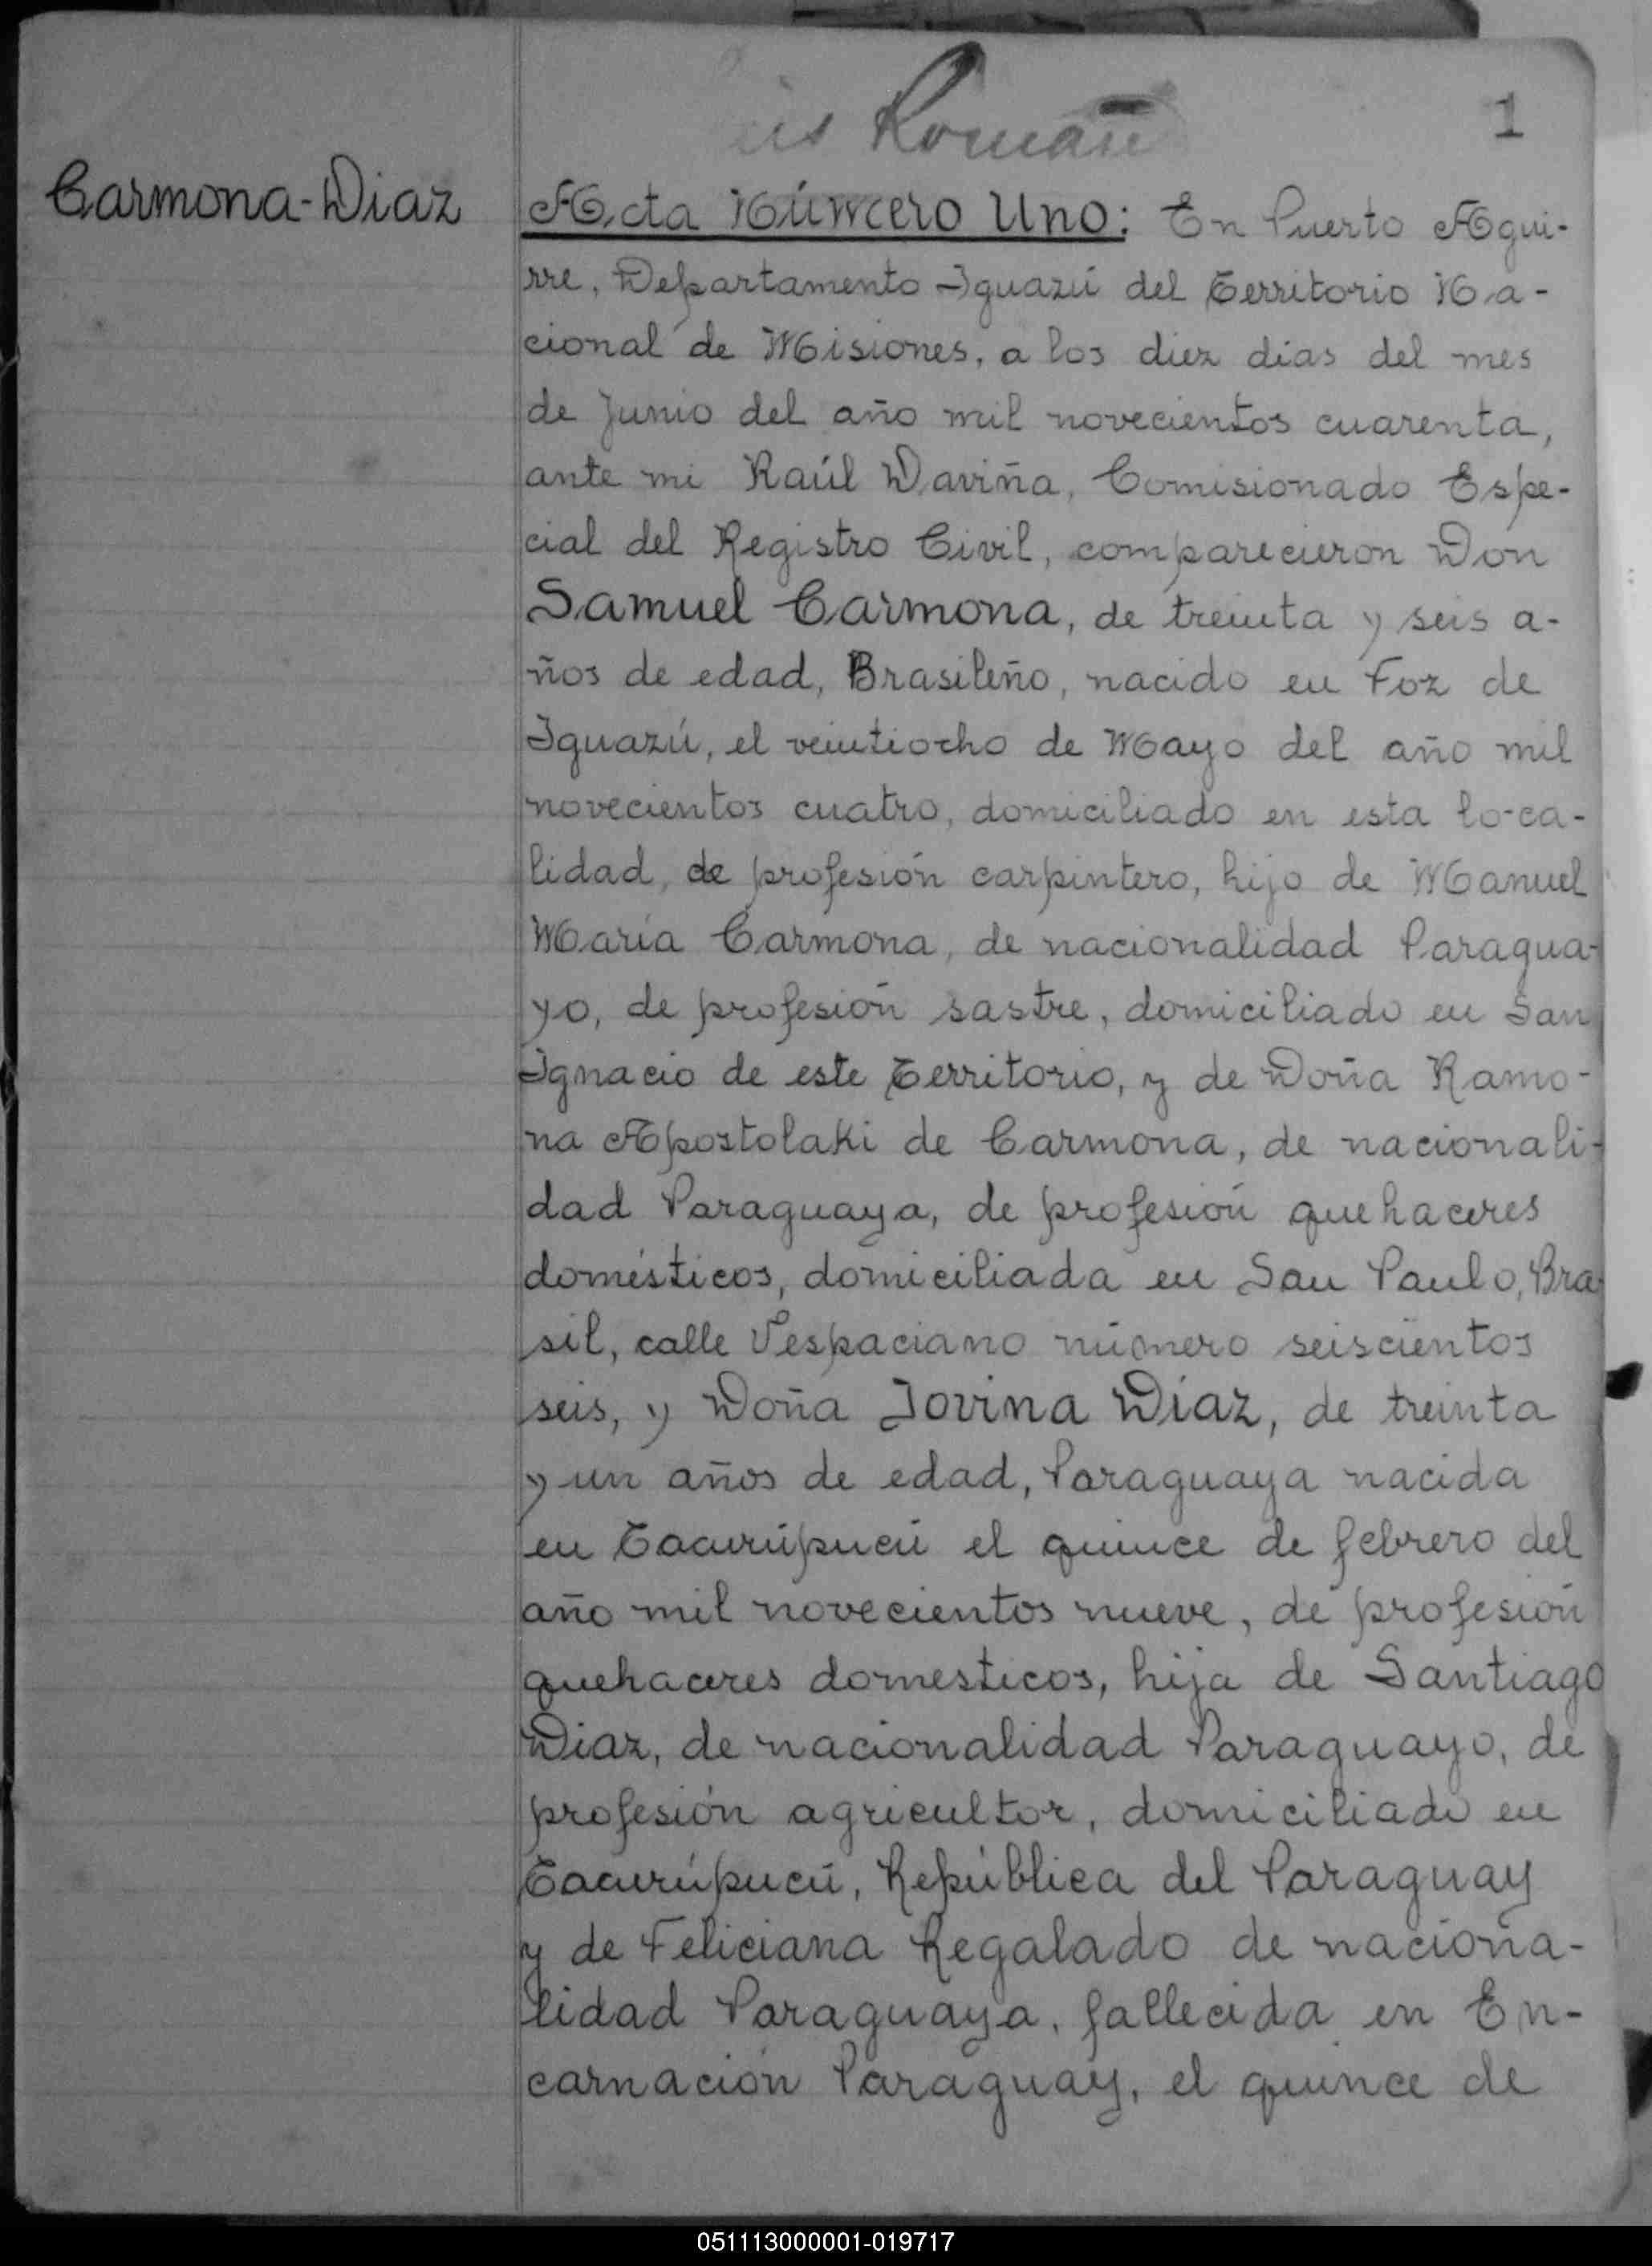 Román
1
Carmona-Diaz
Acta Número Uno: En Puerto Agui-
rre, Departamento Iguazú del Territorio Na-
cional de Misiones, a los diez dias del mes
de Junio del año mil novecientos cuarenta,
ante mi Raúl Daviña, Comisionado Espe-
cial del Registro Civil, comparecieron Don
Samuel Carmona, de treinta y seis a-
ños de edad, Brasileño, nacido en Foz de
Iguazú, el veintiocho de Mayo del año mil
novecientos cuatro, domiciliado en esta lo-ca-
lidad, de profesión carpintero, hijo de Manuel
María Carmona, de nacionalidad Paragua-
yo, de profesión sastre, domiciliado en San
Ignacio de este Territorio, y de Doña Ramo-
na Apostolaki de Carmona, de nacionali-
dad Paraguaya, de profesión quehaceres
domésticos, domiciliada en San Paulo, Bra-
sil, calle Vespaciano número seiscientos
seis, y Doña Jovina Díaz, de treinta
y un años de edad, Paraguaya nacida
en Tacurúpucú el quince de febrero del
año mil novecientos nueve, de profesión
quehaceres domesticos, hija de Santiago
Diaz, de nacionalidad Paraguayo, de
profesión agricultor, domiciliado en
Tacurúpucú, República del Paraguay
y de Feliciana Regalado de naciona-
lidad Paraguaya, fallecida en En-
carnación Paraguay, el quince de
051113000001-019717